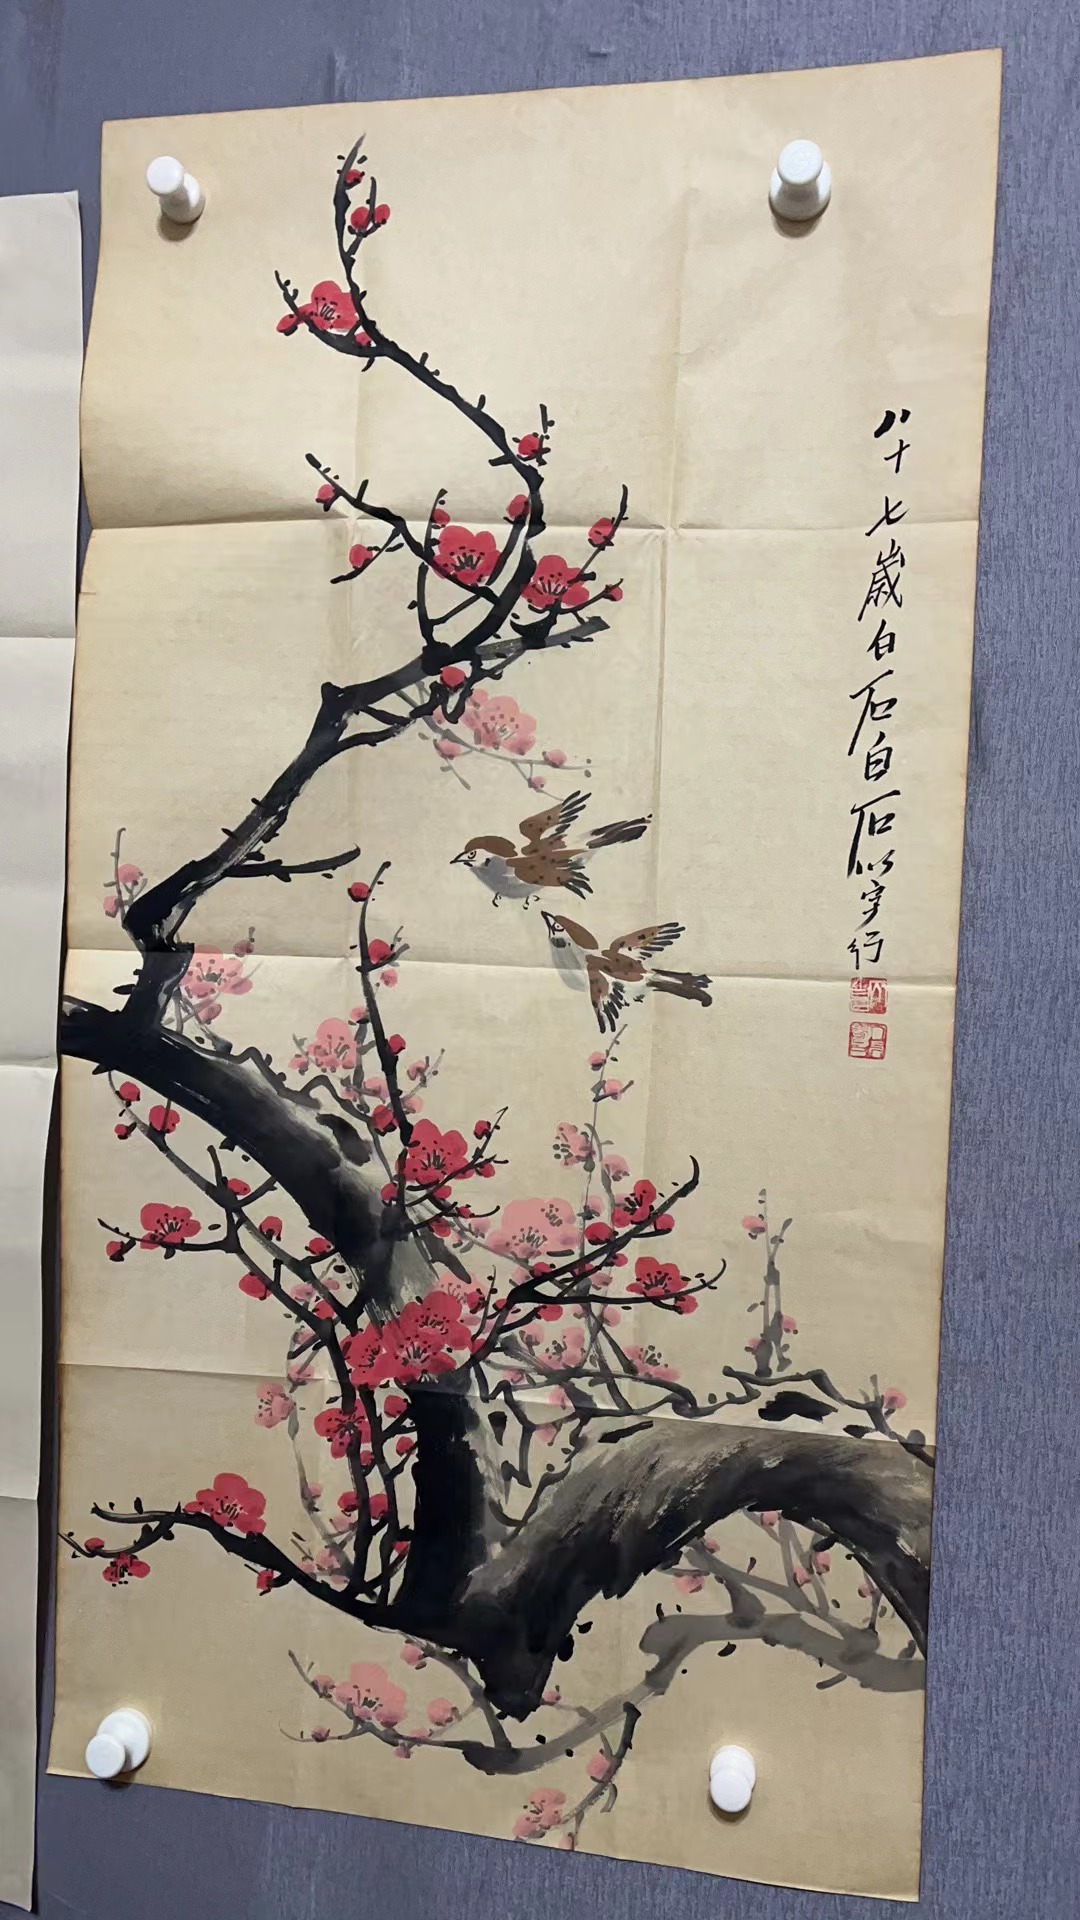 八十七歲白石白石以字行